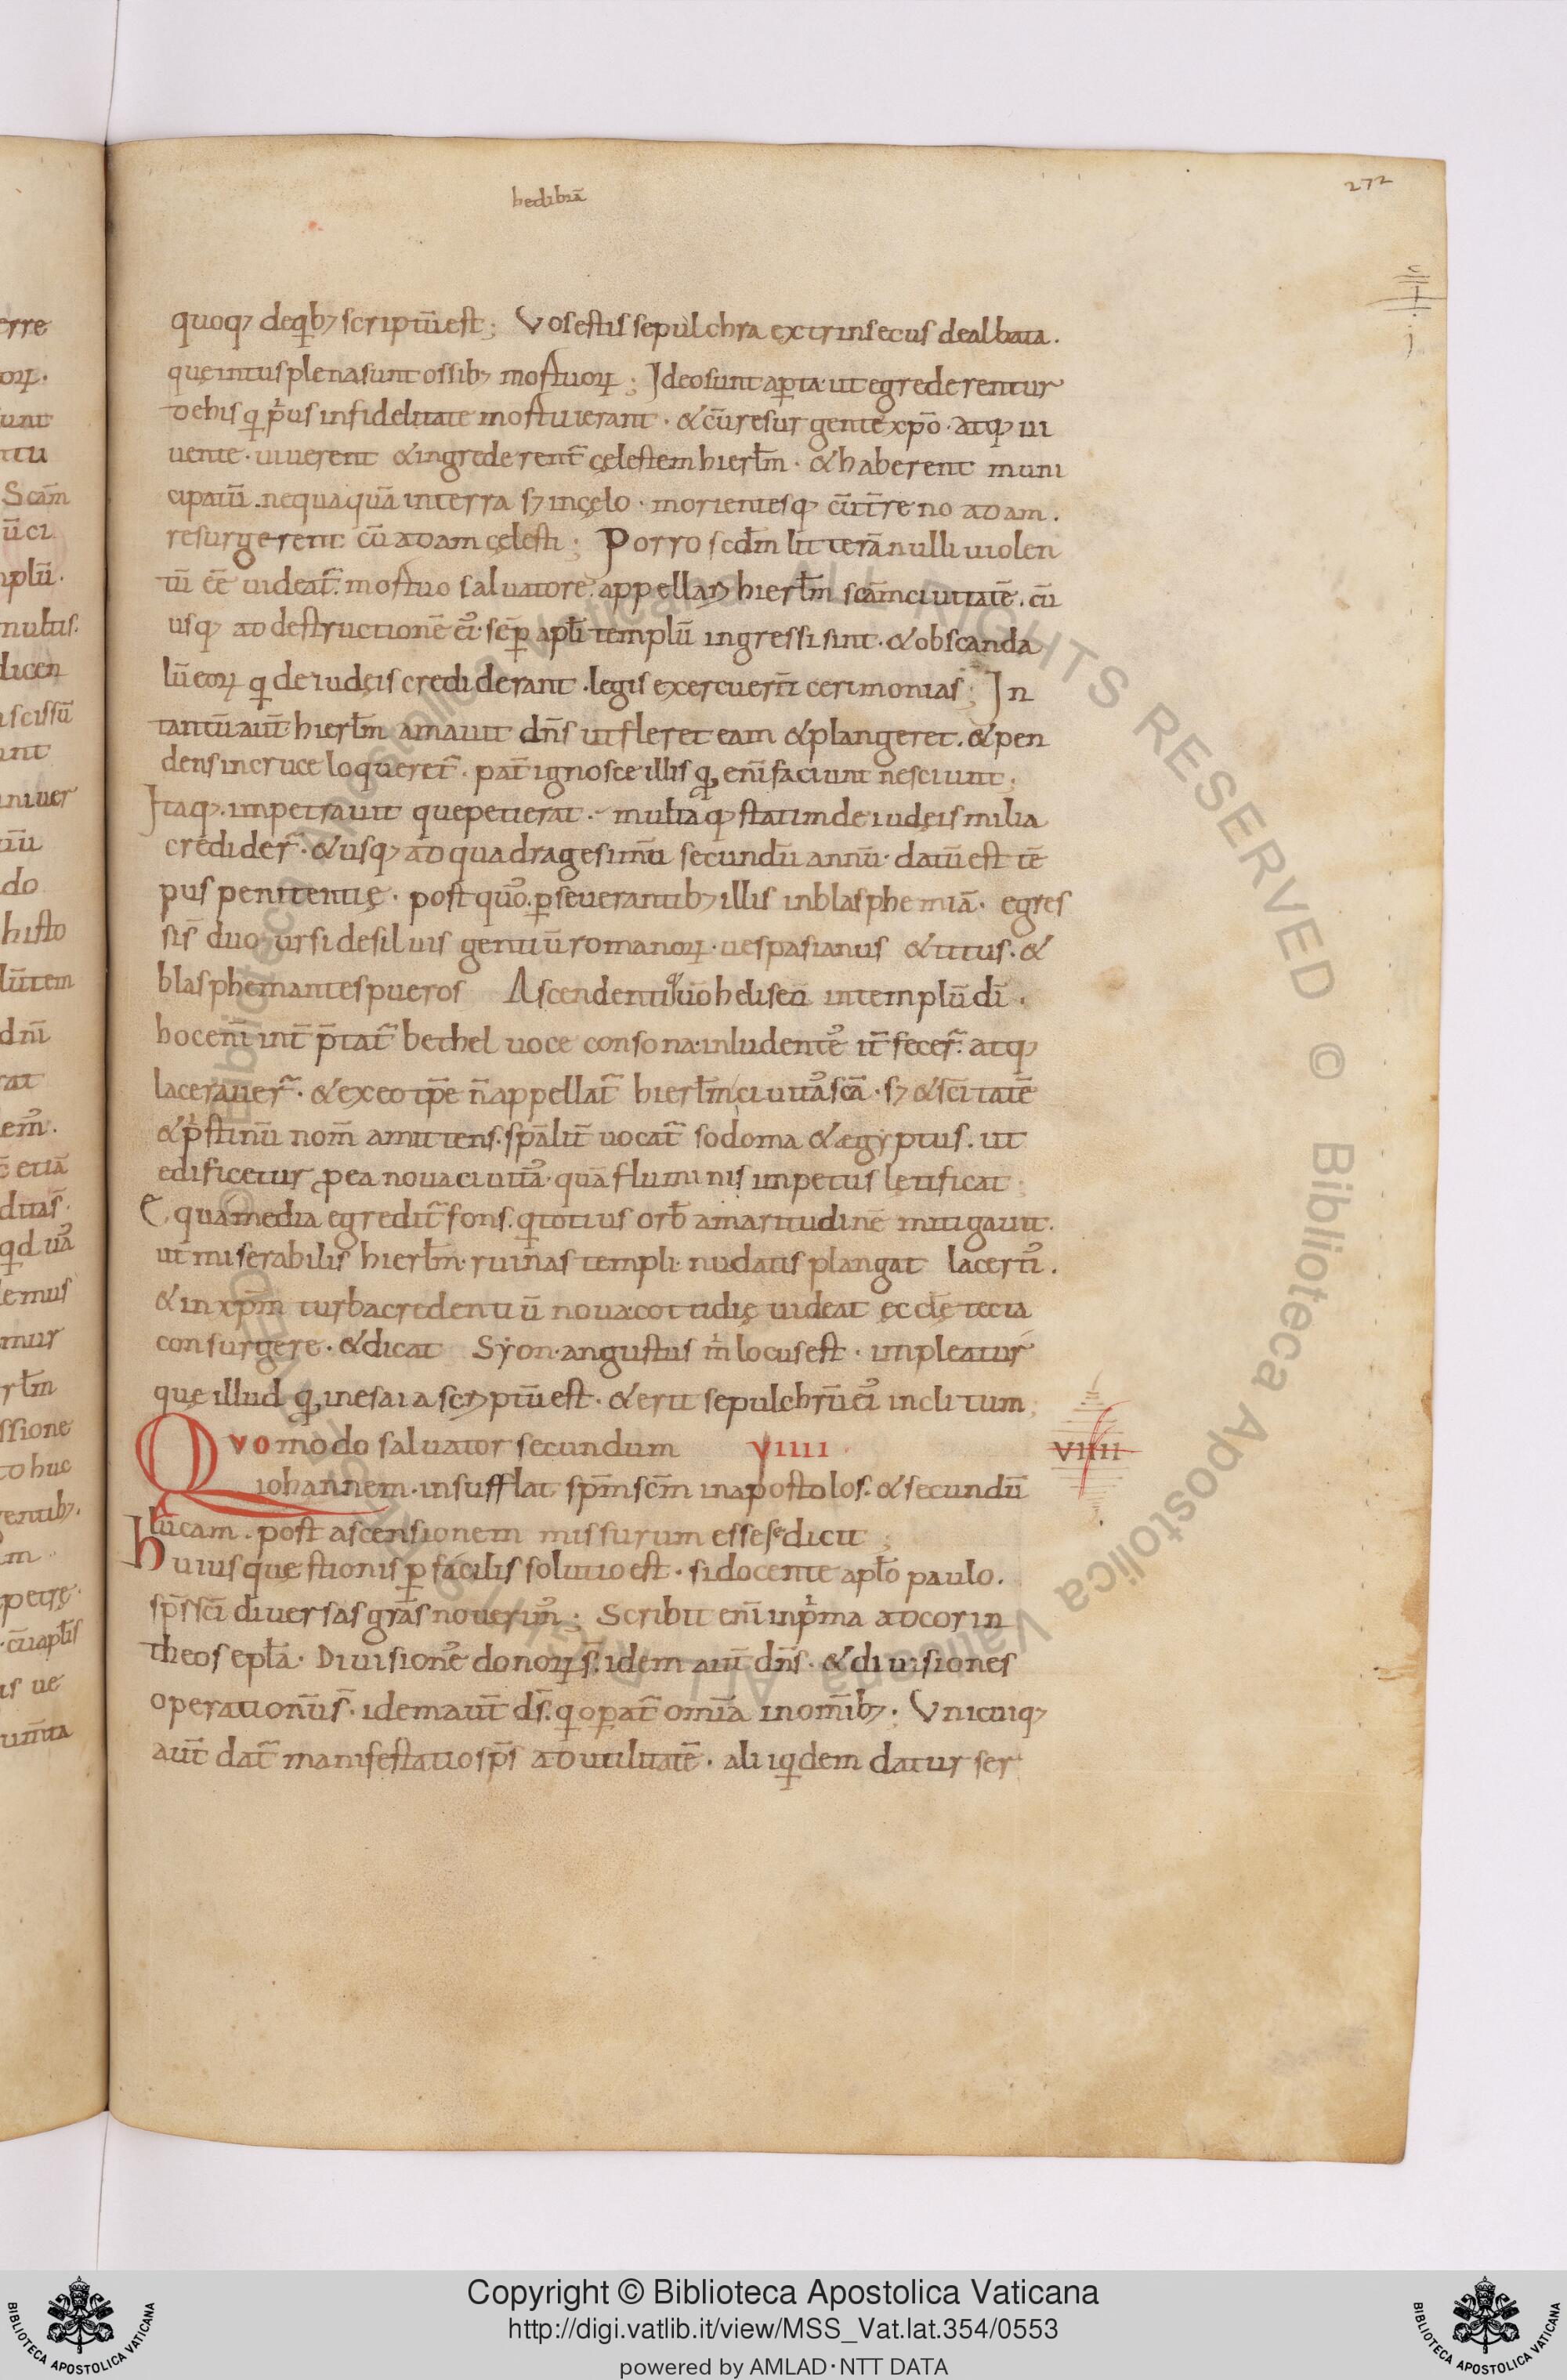 hedibiā
272
quoq; deq̄b; scriptū est; Vos estis sepulchra extrinsecus dealbata.
quę intus plena sunt ossib; mortuoꝝ; Ideo sunt aꝑta· ut egrederentur
de his qͥ pͥus infidelitate mortui erant · & cū resurgente xp̄o · atq; ui
uente · uiuerent & ingrederent᷑ cęlestem hierłm · & haberent muni
cipatū . nequaquā in terra s; in cęlo · morientesq; cū t̄reno adam .
resurgerent cū adam cęlesti; Porro scdm̄ litterā nulli uiolen
tū eē uideat᷑. mortuo saluatore . appellari hierłm scām ciuitatē . cū
usq; ad destructionē ei᷒ · sēꝑ apłi templū ingressi sint · & ob scanda
lū eoꝝ qͥ de iudęis crediderant · legis exercuerīt cerimonias; In
tantū aūt hierłm amauit dn̄s ut fleret eam & plangeret . & pen
dens in cruce loqueret᷑ · pat̄ ignosce illis qđ eni̅ faciunt nesciunt;
Itaq; · impetrauit quę petierat · multaq; statim de iudęis milia
credider᷑ · & usq; ad quadragesimū secundū annū · datū est tē
pus penitentię · post quo᷒ . ꝑseuerantib; illis in blasphemiā · egres
sis̄ duo ursi de siluis gentiū romanoꝝ · uespasianus & titus · &
blasphemantes pueros Ascendenti uōhelisęū in templū dī ·
hoc enī int̄ p̄tat᷑ bethel uoce consona · inludente᷒ it̄ fecer᷑ · atq;
lacerauer᷑ · & ex eo tp̄e n̄ appellat᷑ hierłm ciuita᷒ scā · s; & scītatē
& pͥstinū nom̄ amittens . sp̄alit̄ uocat᷑ sodoma & ægyptus . ut
edificetur ꝓ ea noua ciuita᷒ · quā fluminis impetus lętificat;
E qua media egredit᷑ fons . qͥ totius orƀ amaritudinē mitigauit .
ut miserabilis hierłm · ruinas templi · nudatis plangat lacerti᷒ .
& in xp̄m turba credentiū noua cottidię uideat ęccłę tecta
consurgere · & dicat Syon · angustus mͥ locus est · impleatur
quę illud qđ in esaia scriptū est · & erit sepulchrū ei᷒ inclitum;
Quomodo saluator secundum VIIII · VIIII
iohannem · insufflat sp̄m scm̄ in apostolos . & secundū
lucam . post ascensionem missurum esse se dicit;
Huius quęstionis ꝑfacilis solutio est · si docente apło paulo .
sp̄s sc̄i diuersas grās nouerim᷒; Scribit enī in pͥma ad corin
theos epłā · Diuisione᷒ donoꝝ s̄. idem aūt dn̄s · & diuisiones
operationū s̄ · idem aūt ds̄ . qͥ oꝑat᷑ omīa in om̄ib; · Vnicuiq;
aūt dat᷑ manifestatio sp̄s ad utilitatē · alii qͥdem datur ser
Copyright © Biblioteca Apostolica Vaticana
http://digi.vatlib.it/view/MSS_Vat.lat.354/0553
powered by AMLAD·NTT DATA